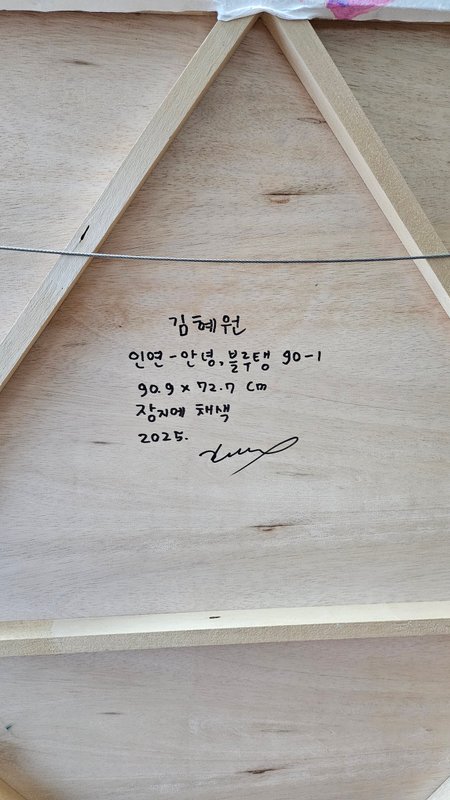 김혜원
인연-안녕, 블루탱 90-1
90.9 x 72.7 cm
장지에 채색
2025.